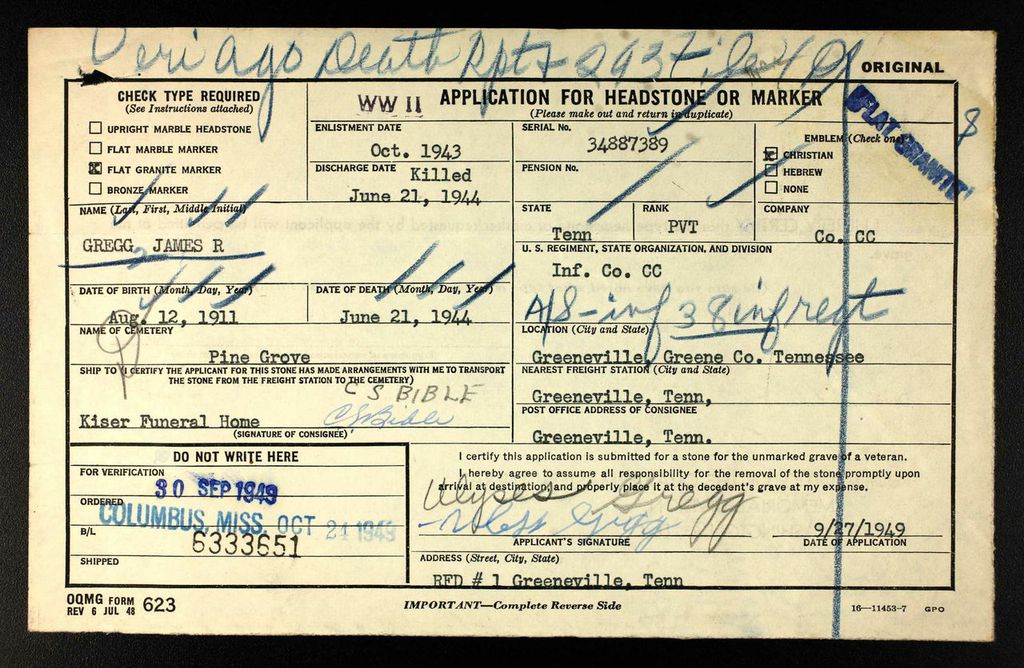 Veri Ago Death Rpt
ORIGINAL
CHECK TYPE REQUIRED
(See Instructions attached)
UPRIGHT MARBLE HEADSTONE
FLAT MARBLE MARKER
FLAT GRANITE MARKER
BRONZE MARKER
WW II
APPLICATION FOR HEADSTONE OR MARKER
(Please make out and return in duplicate)
FLAT GRANITE
8
ENLISTMENT DATE
Oct. 1943
DISCHARGE DATE Killed
June 21, 1944
SERIAL No.
34887389
PENSION No.
EMBLEM (Check one)
CHRISTIAN
HEBREW
NONE
NAME (Last, First, Middle Initial)
GREGG, JAMES R
STATE
Tenn
RANK
PVT
COMPANY
Co. CC
U. S. REGIMENT, STATE ORGANIZATION, AND DIVISION
Inf. Co. CC
A/S-inf 38 inf regt
DATE OF BIRTH (Month, Day, Year)
Aug. 12, 1911
DATE OF DEATH (Month, Day, Year)
June 21, 1944
NAME OF CEMETERY
Pine Grove
LOCATION (City and State)
Greeneville, Greene Co. Tennessee
SHIP TO (I CERTIFY THE APPLICANT FOR THIS STONE HAS MADE ARRANGEMENTS WITH ME TO TRANSPORT
THE STONE FROM THE FREIGHT STATION TO THE CEMETERY)
C S BIBLE
Kiser Funeral Home
CS Bible
(SIGNATURE OF CONSIGNEE)
NEAREST FREIGHT STATION (City and State)
Greeneville, Tenn,
POST OFFICE ADDRESS OF CONSIGNEE
Greeneville, Tenn.
DO NOT WRITE HERE
FOR VERIFICATION
30 SEP 1949
ORDERED
COLUMBUS, MISS. OCT 24 1949
B/L
6333651
SHIPPED
I certify this application is submitted for a stone for the unmarked grave of a veteran.
I hereby agree to assume all responsibility for the removal of the stone promptly upon
arrival at destination, and properly place it at the decedent's grave at my expense.
Ulyses Gregg
Gregg
9/27/1949
APPLICANT'S SIGNATURE
DATE OF APPLICATION
ADDRESS (Street, City, State)
RFD # 1 Greeneville, Tenn
OQMG FORM
REV 6 JUL 48 623
IMPORTANT—Complete Reverse Side
16—11453-7 GPO